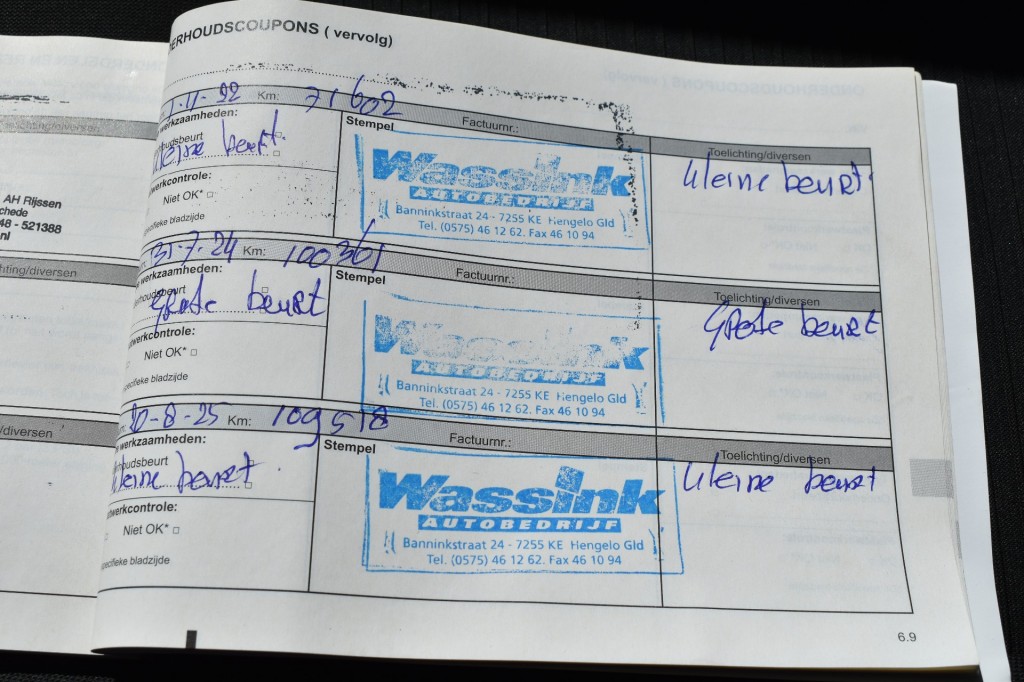 ERHOUDSCOUPONS ( vervolg)
-11-22 Km: 71602
werkzaamheden:
Stempel
Factuurnr.:
Toelichting/diversen
houdsbeurt
kleine beurt.
Wassink
AUTOBEDRIJF
Banninkstraat 24 - 7255 KE Hengelo Gld
Tel. (0575) 46 12 62. Fax 46 10 94
kleine beurt.
werkcontrole:
Niet OK*
specifieke bladzijde
31-7-24 Km: 100361
werkzaamheden:
Stempel
Factuurnr.:
Toelichting/diversen
houdsbeurt
Grote beurt
Wassink
AUTOBEDRIJF
Banninkstraat 24 - 7255 KE Hengelo Gld
Tel. (0575) 46 12 62. Fax 46 10 94
Grote beurt
werkcontrole:
Niet OK*
specifieke bladzijde
20-8-25 Km: 109518
werkzaamheden:
Stempel
Factuurnr.:
Toelichting/diversen
houdsbeurt
kleine beurt
Wassink
AUTOBEDRIJF
Banninkstraat 24 - 7255 KE Hengelo Gld
Tel. (0575) 46 12 62. Fax 46 10 94
kleine beurt
werkcontrole:
Niet OK*
specifieke bladzijde
6.9
AH Rijssen
chede
48 - 521388
nl
hting/diversen
/diversen